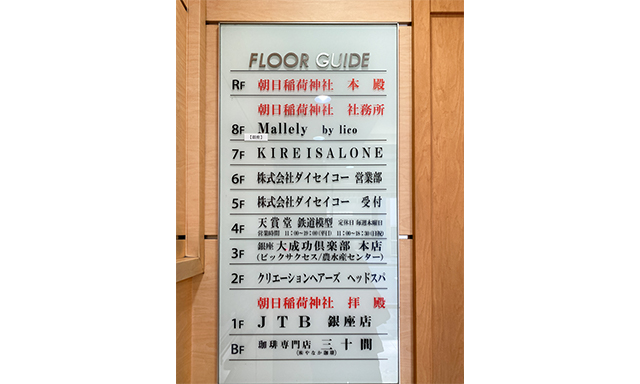 FLOOR GUIDE
RF 朝日稲荷神社 本 殿
朝日稲荷神社 社務所
8F Mallely by lico
7F KIREISALONE
6F 株式会社ダイセイコー 営業部
5F 株式会社ダイセイコー 受付
4F 天賞堂 鉄道模型 定休日 毎週木曜日
営業時間 11:00~19:00(平日) 11:00~18:30(日祝)
3F 銀座 大成功倶楽部 本店
(ビックサクセス/農水産センター)
2F クリエーションヘアーズ ヘッドスパ
朝日稲荷神社 拝 殿
1F JTB 銀座店
BF 珈琲専門店 三十間
(㈱やなか珈琲)